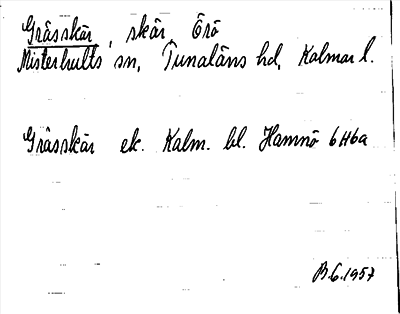 Gråsskär, skär, Örö
Misterhults sn, Tunaläns hd, Kalmar l.
Gråsskär ek. Kalm. bl. Hamnö 6H6a
B.G. 1957